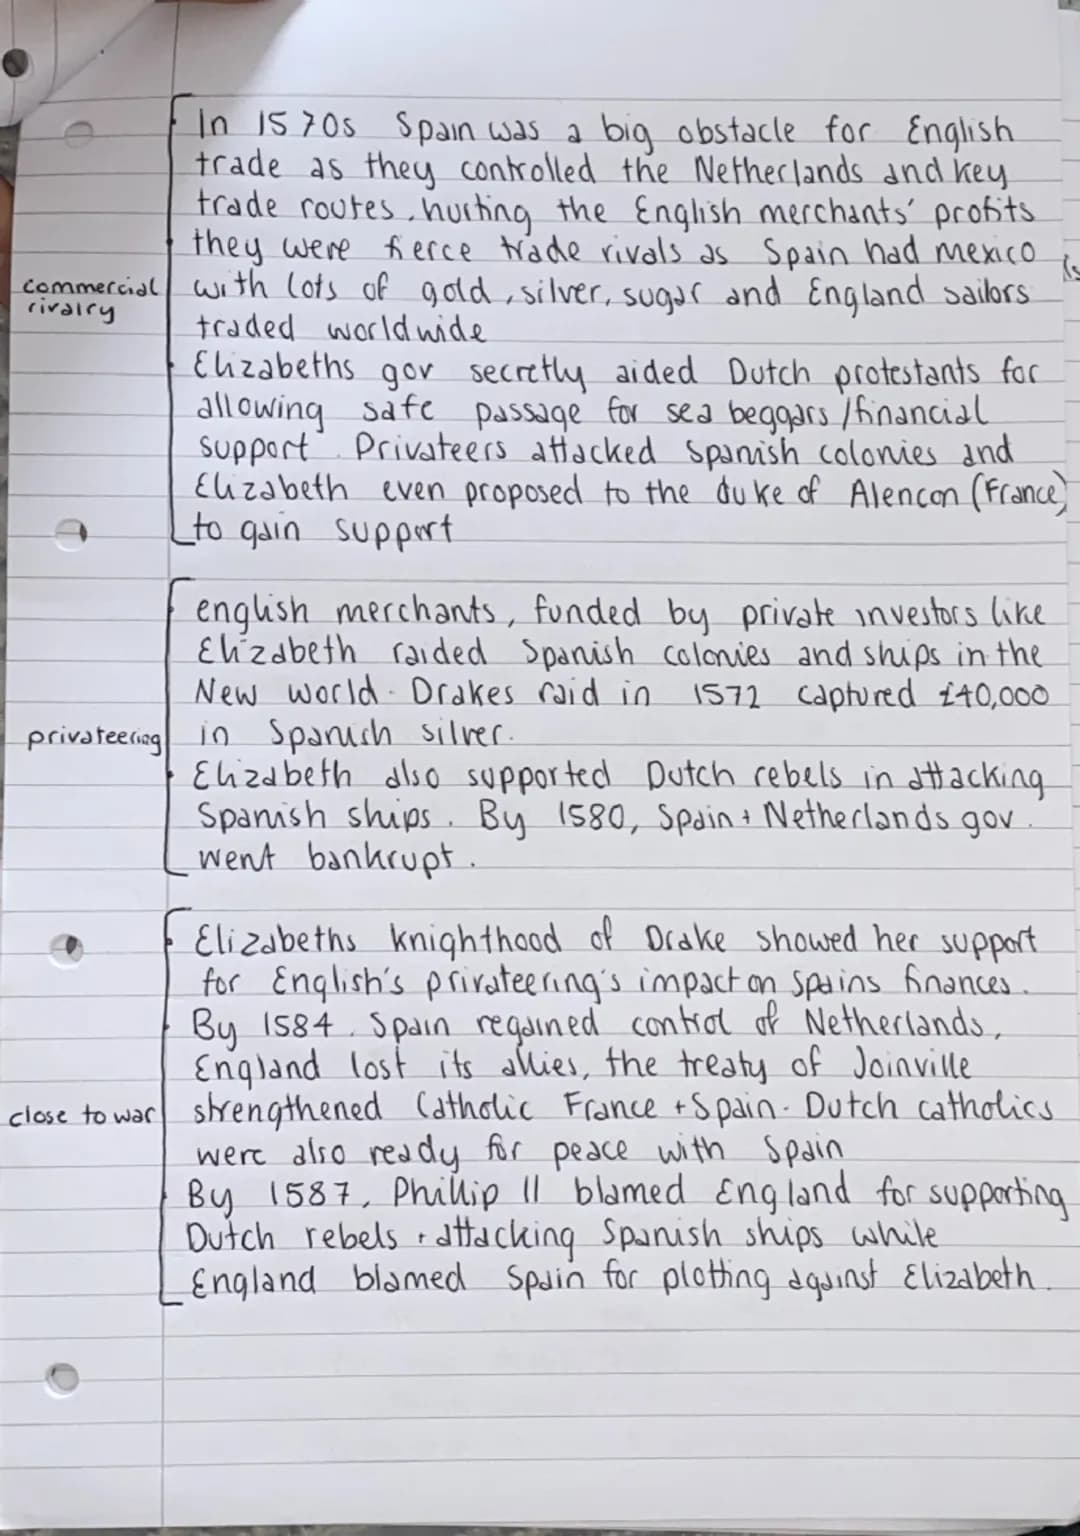 In 1570s Spain was a big obstacle for English
trade as they controlled the Netherlands and key
trade routes, hurting the English merchants' profits
they were fierce trade rivals as Spain had mexico
commercial
rivalry
with lots of gold, silver, sugar and England sailors
traded worldwide
Elizabeths gov secretly aided Dutch protestants for
allowing safe passage for sea beggars / financial
support. Privateers attacked Spanish colonies and
Elizabeth even proposed to the duke of Alencon (France)
to gain support
english merchants, funded by private investors like
Elizabeth raided Spanish colonies and ships in the
New world. Drakes raid in 1572 captured £40,000
privateering
in Spanish silver.
Elizabeth also supported Dutch rebels in attacking
Spanish ships. By 1580, Spain + Netherlands gov.
went bankrupt.
Elizabeths knighthood of Drake showed her support
for English's privateering's impact on Spains finances.
By 1584. Spain regained control of Netherlands,
England lost its allies, the treaty of Joinville
close to war
strengthened Catholic France + Spain. Dutch catholics
were also ready for peace with Spain
By 1587, Phillip II blamed England for supporting
Dutch rebels + attacking Spanish ships while
England blamed Spain for plotting against Elizabeth.